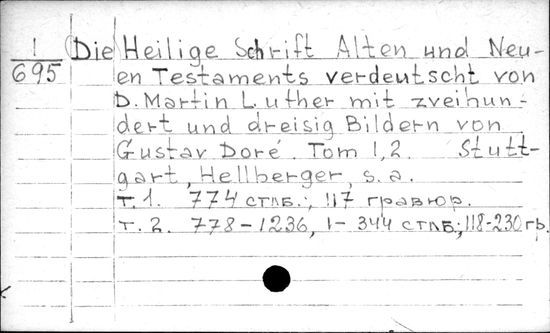 1/695 (Die) Heilige Schrift Alten und Neu-
en Testaments verdeutscht von
D. Martin Luther mit zveihun-
dert und dreisig Bildern von
Gustav Doré. Tom 1,2. Stutt-
gart, Hellberger, s.a.
т.1. 774 стлб.; 117 гравюр.
т.2. 778-1236, 1-344 стлб.; 118-230 гр.